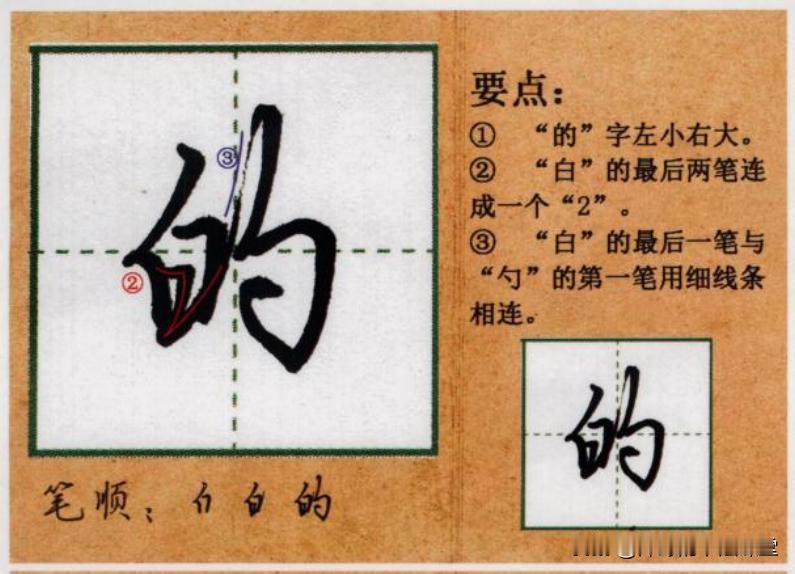 的
③
②
笔顺：白 的
要点：
① “的”字左小右大。
② “白”的最后两笔连
成一个“2”。
③ “白”的最后一笔与
“勺”的第一笔用细线条
相连。
的